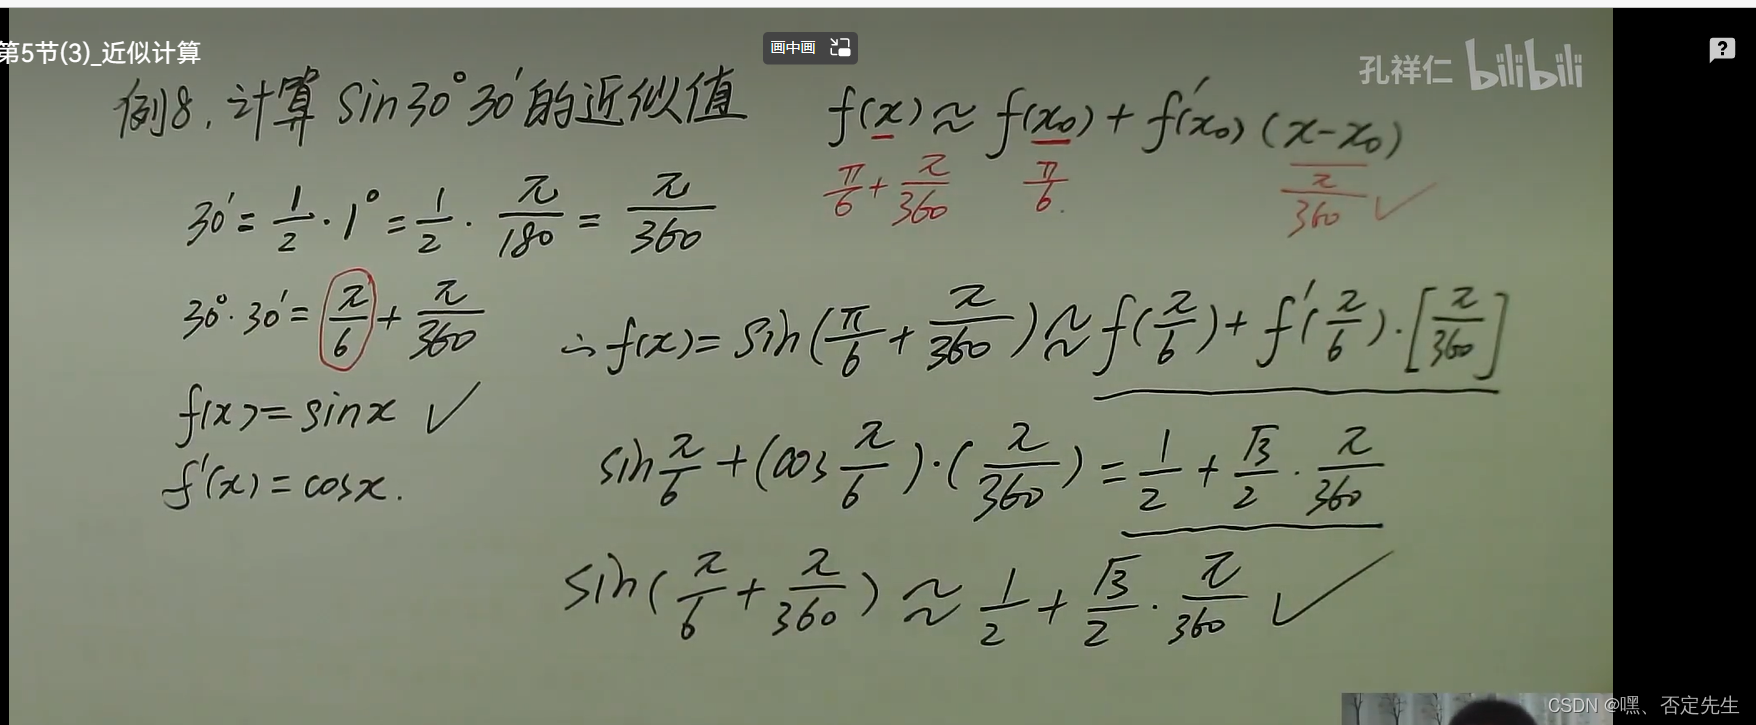 第5节(3)_近似计算
画中画
?
孔祥仁 bilibili
例8. 计算 sin30°30′的近似值
f(x) ≈ f(x₀) + f′(x₀) (x-x₀)
π/6 + π/360
π/6
π/360 ✓
30′ = 1/2 · 1° = 1/2 · π/180 = π/360
30°·30′ = π/6 + π/360
f(x) = sinx ✓
f′(x) = cosx.
∴ f(x) = sin(π/6 + π/360) ≈ f(π/6) + f′(π/6) · [π/360]
sin π/6 + (cos π/6) · (π/360) = 1/2 + √3/2 · π/360
sin(π/6 + π/360) ≈ 1/2 + √3/2 · π/360 ✓
CSDN @嘿、否定先生